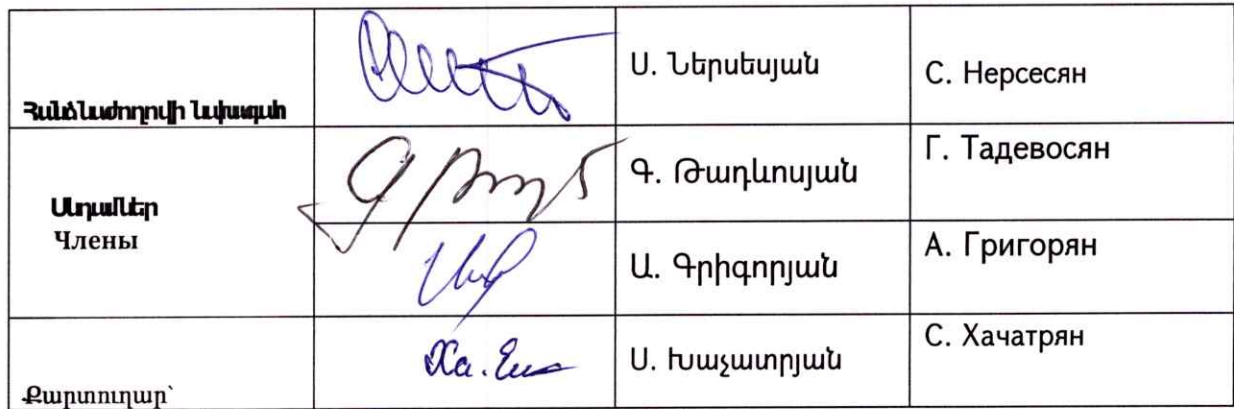 Հանձնաժողովի նախագահ
Ս. Ներսեսյան
С. Нерсесян
Անդամներ
Члены
Գ. Թադևոսյան
Г. Тадевосян
Ա. Գրիգորյան
А. Григорян
Քարտուղար՝
Ս. Խաչատրյան
С. Хачатрян